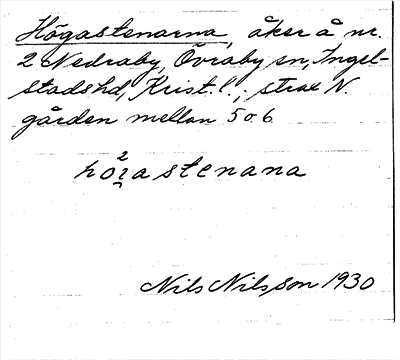 Högastenarna, åker å nr.
2 Nedraby, Övraby sn, Ingel-
stads hd, Krist. l.; strax N.
gården mellan 5 o 6
hö²ʒastenana
Nils Nilsson 1930